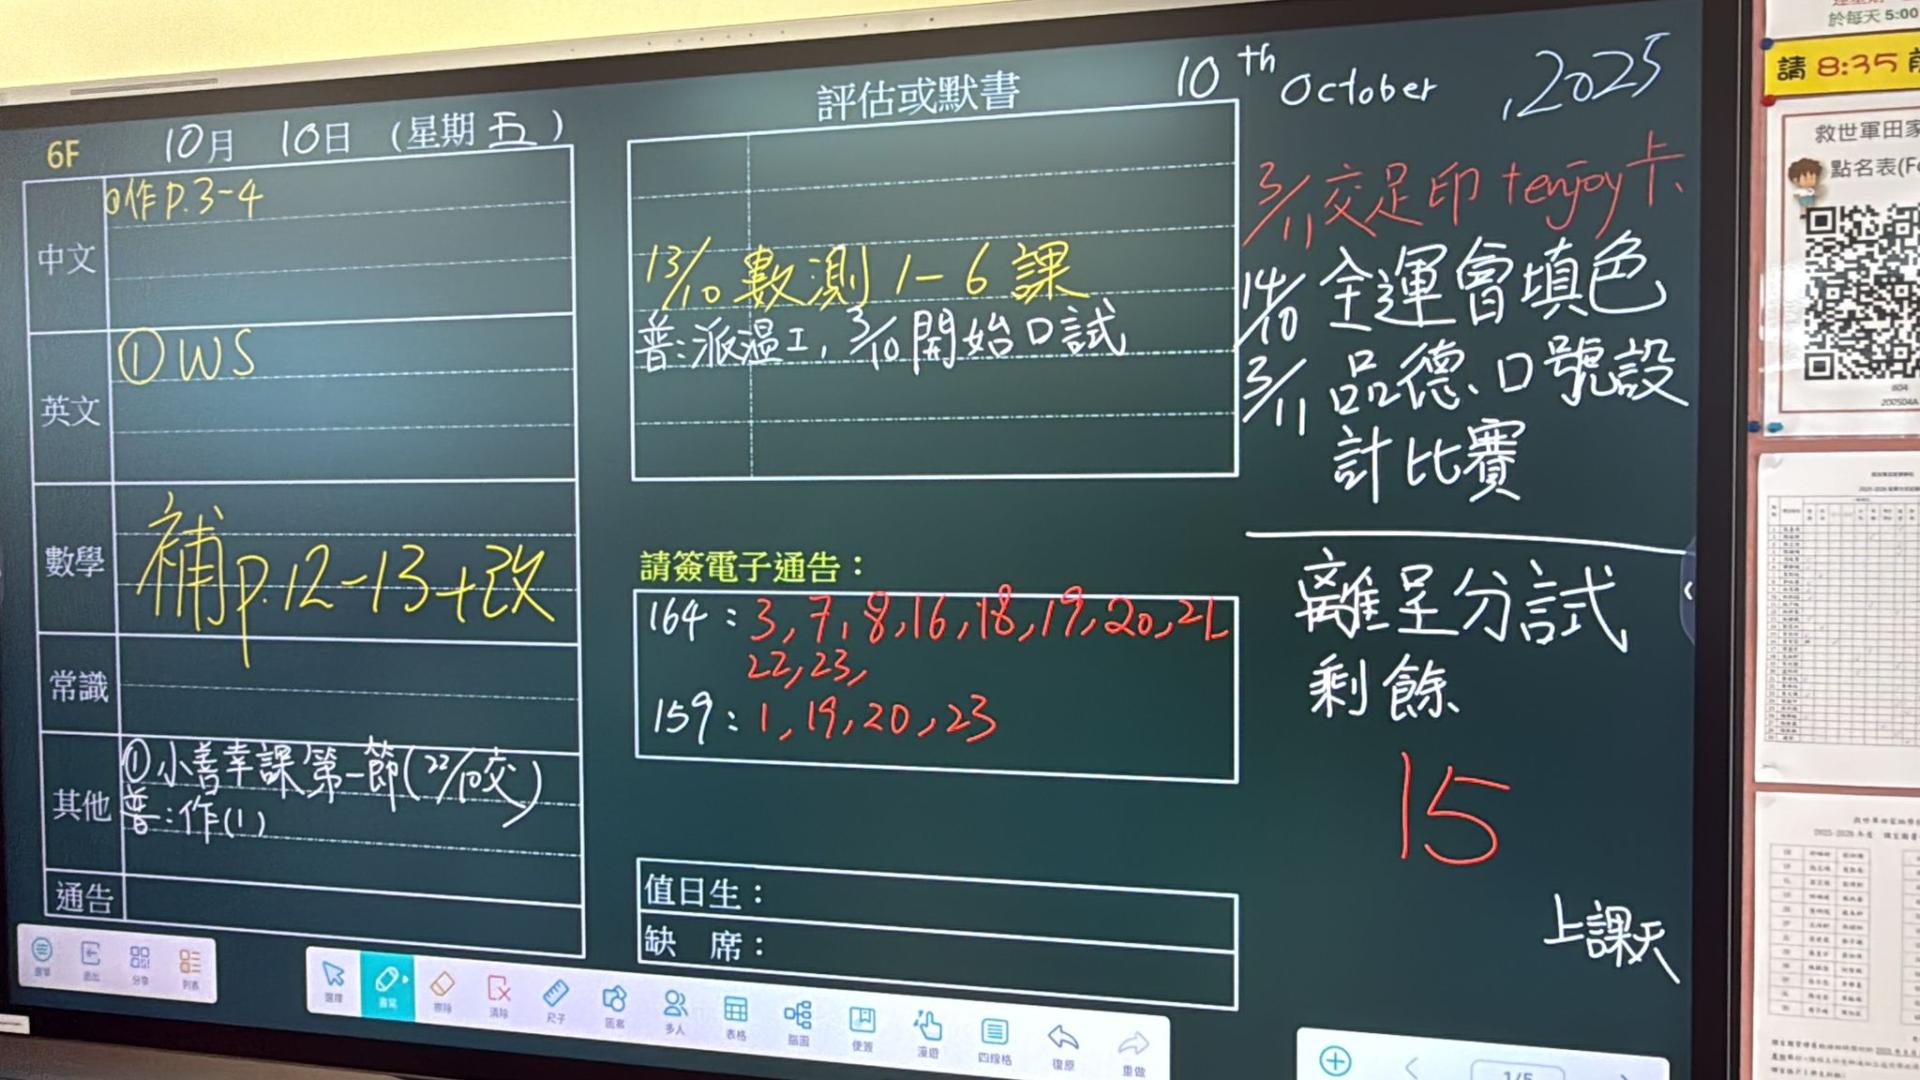 6F 10月 10日 (星期五)
中文
①作 P.3-4
英文
① WS
數學
補 p.12-13+改
常識
其他
①小善幸課第一節(22/10交)
普:作(1)
通告
評估或默書
13/10 數測 1-6 課
普:派溫工, 3/10 開始口試
請簽電子通告：
164 : 3, 7, 8, 16, 18, 19, 20, 21
22, 23,
159 : 1, 19, 20, 23
值日生：
缺 席：
10th October, 2025
3/11 交足印 + enjoy卡
14/10 全運會填色
3/11 品德、口號設
計比賽
離呈分試
剩餘
15
上課天
選單 退出 分享 列表
選擇 書寫 擦除 清除 尺子 圖案 多人 表格 腦圖 便簽 漫遊 四線格 復原 重做
1/5
於每天 5:00
請 8:35 前
救世軍田家
點名表(F